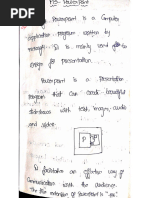 MS - PowerPoint
PowerPoint is a Computer
application program
It is mainly used
design for presentation.
PowerPoint is a Presentation
Program that can create beautiful
with text, images, audio
and video.
P
It facilitates an effective way of
Communication with the audience.
The file extension of PowerPoint is